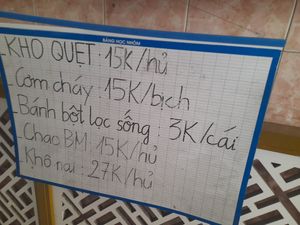 BẢNG HỌC NHÓM
KHO QUẸT: 15K/hủ
Cơm cháy: 15K/bịch
Bánh bột lọc sống: 3K/cái
Chao BM: 15K/hủ
Khô nai: 27K/hủ